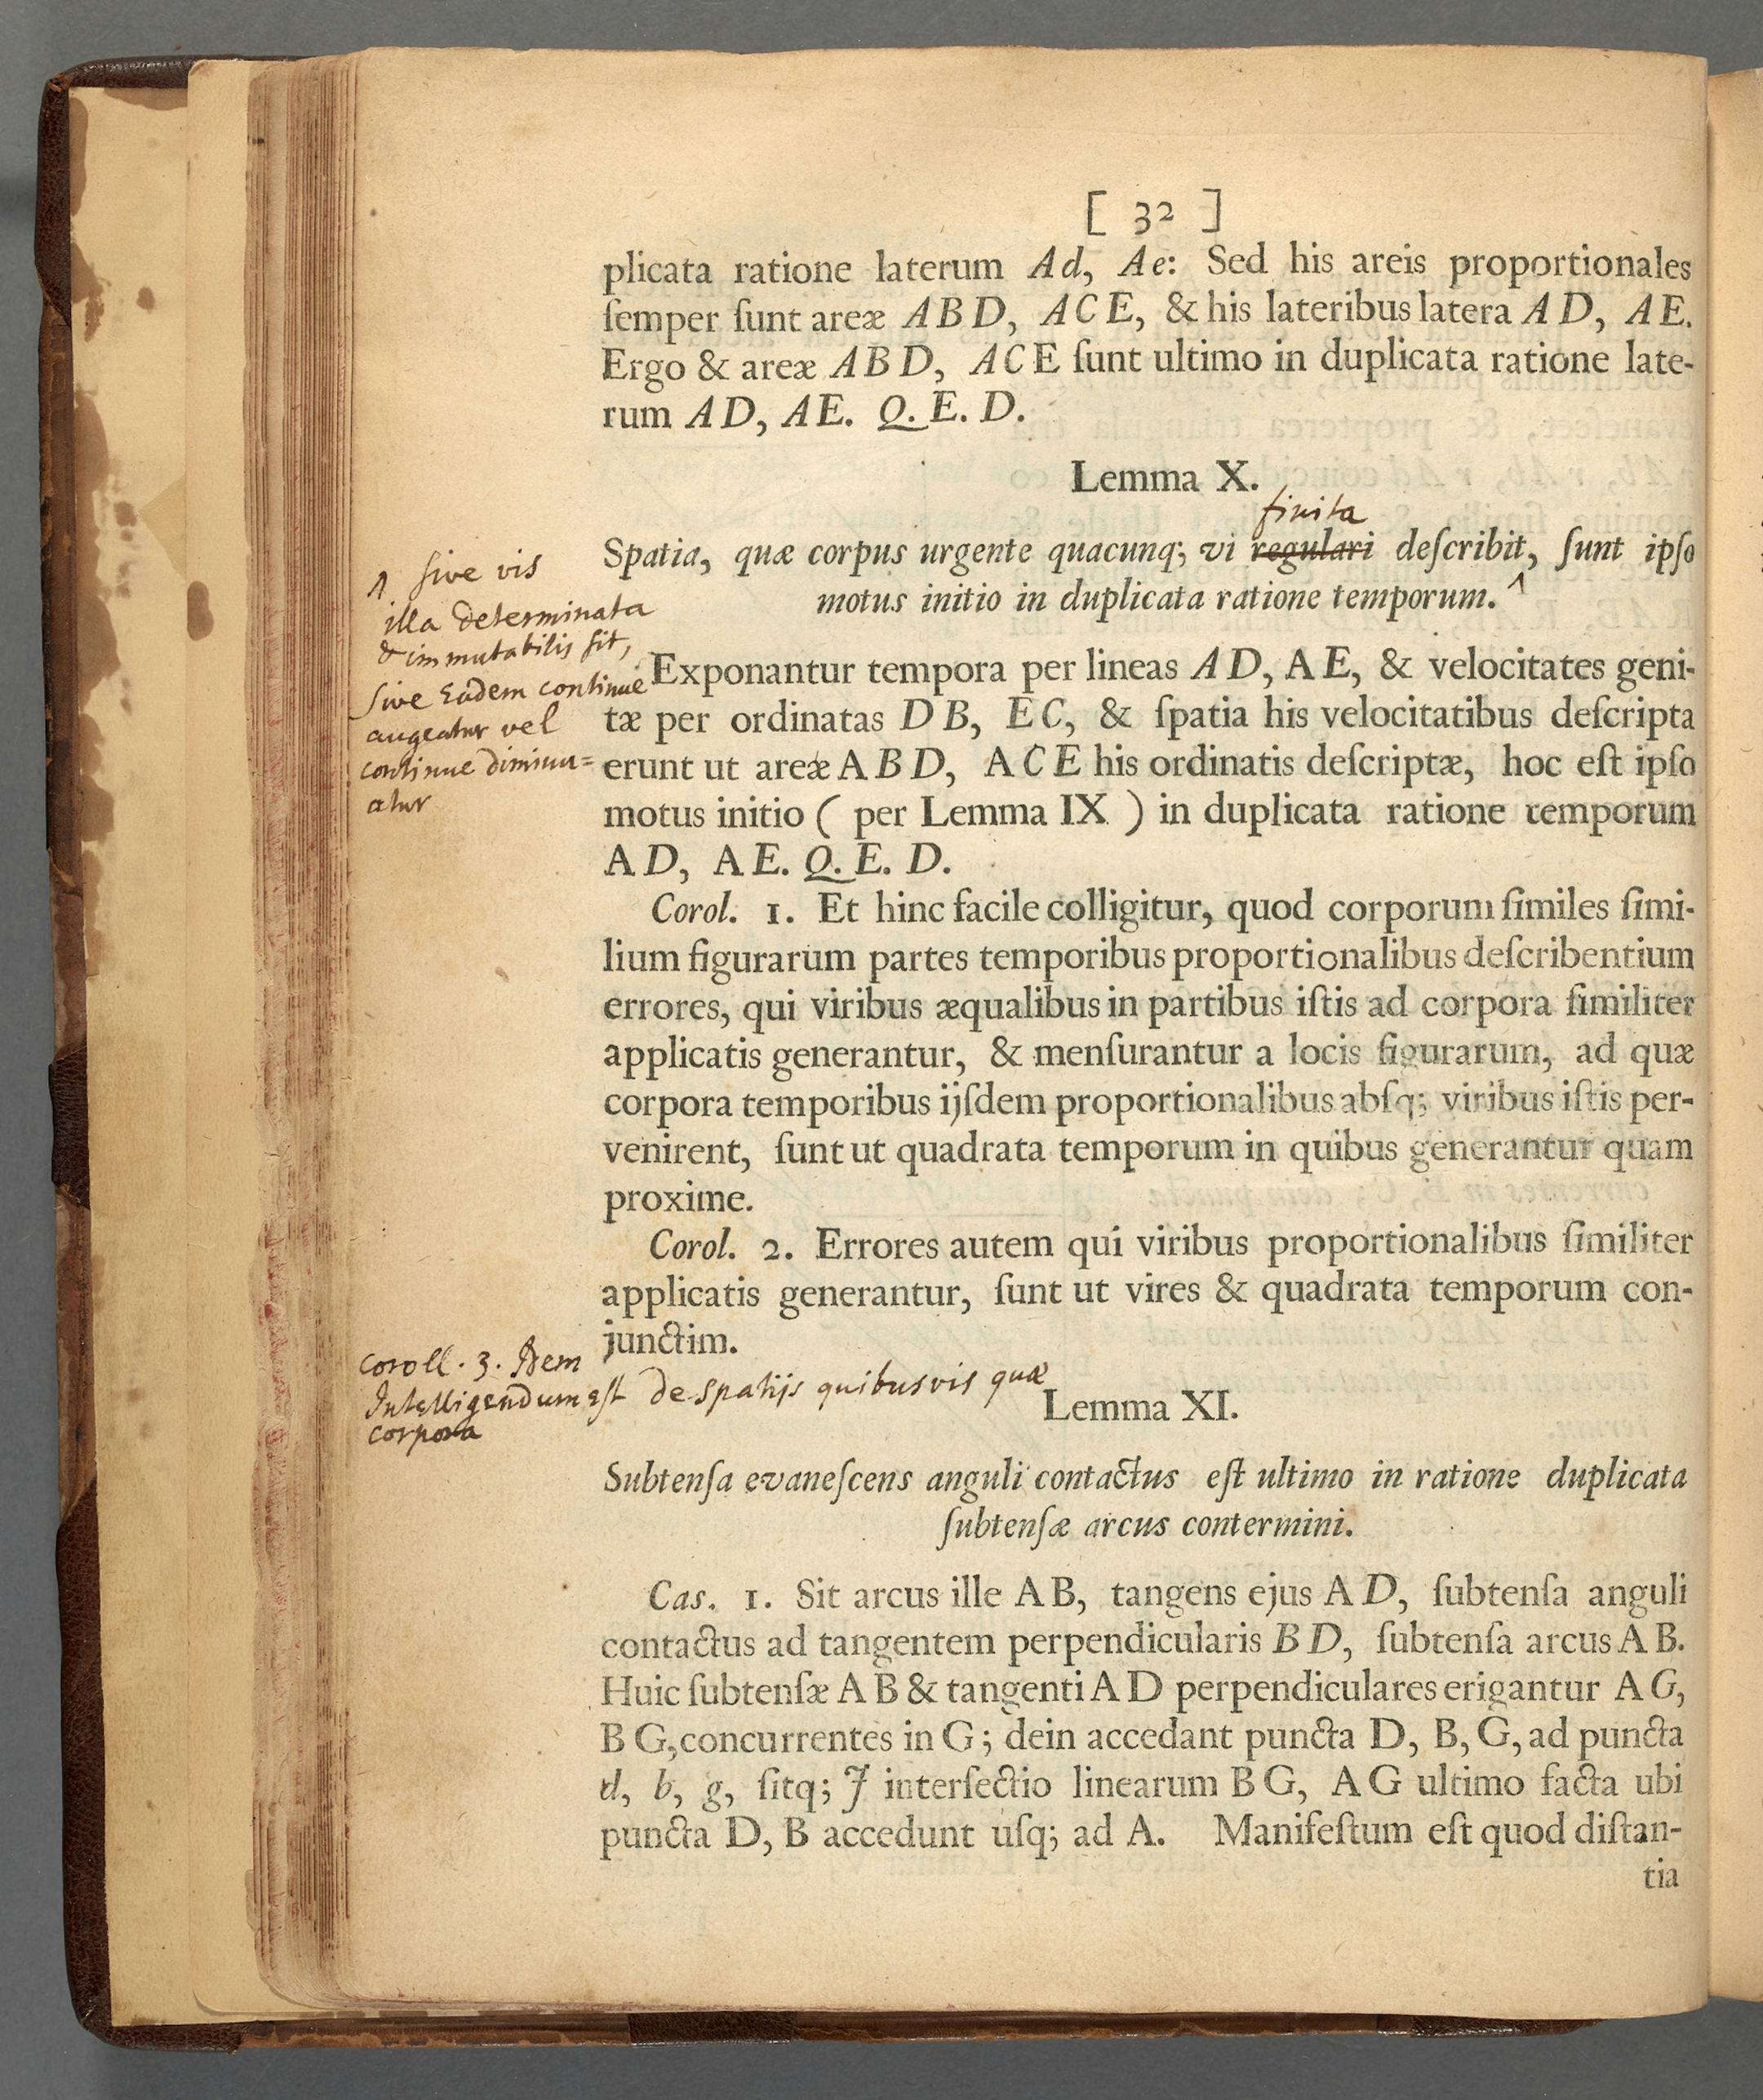 [ 32 ]
plicata ratione laterum Ad, Ae: Sed his areis proportionales
ſemper ſunt areæ ABD, ACE, & his lateribus latera AD, AE.
Ergo & areæ ABD, ACE ſunt ultimo in duplicata ratione late-
rum AD, AE. Q. E. D.
Lemma X.
finita
Spatia, quæ corpus urgente quacunq; vi regulari deſcribit, ſunt ipſo
^
motus initio in duplicata ratione temporum.
^ ſive vis
illa determinata
& immutabilis ſit,
ſive Eadem continue
augeatur vel
continue diminu=
atur
Exponantur tempora per lineas AD, AE, & velocitates geni-
tæ per ordinatas DB, EC, & ſpatia his velocitatibus deſcripta
erunt ut areæ ABD, ACE his ordinatis deſcriptæ, hoc eſt ipſo
motus initio ( per Lemma IX ) in duplicata ratione temporum
AD, AE. Q. E. D.
Corol. 1. Et hinc facile colligitur, quod corporum ſimiles ſimi-
lium figurarum partes temporibus proportionalibus deſcribentium
errores, qui viribus æqualibus in partibus iſtis ad corpora ſimiliter
applicatis generantur, & menſurantur a locis figurarum, ad quæ
corpora temporibus ijſdem proportionalibus abſq; viribus iſtis per-
venirent, ſunt ut quadrata temporum in quibus generantur quam
proxime.
Corol. 2. Errores autem qui viribus proportionalibus ſimiliter
applicatis generantur, ſunt ut vires & quadrata temporum con-
junctim.
Coroll. 3. Idem
Intelligendum eſt de ſpatijs quibusvis quæ
corpora
Lemma XI.
Subtenſa evaneſcens anguli contactus eſt ultimo in ratione duplicata
ſubtenſæ arcus contermini.
Cas. 1. Sit arcus ille AB, tangens ejus AD, ſubtenſa anguli
contactus ad tangentem perpendicularis BD, ſubtenſa arcus AB.
Huic ſubtenſæ AB & tangenti AD perpendiculares erigantur AG,
BG, concurrentes in G; dein accedant puncta D, B, G, ad puncta
d, b, g, ſitq; J interſectio linearum BG, AG ultimo facta ubi
puncta D, B accedunt uſq; ad A. Manifeſtum eſt quod diſtan-
tia